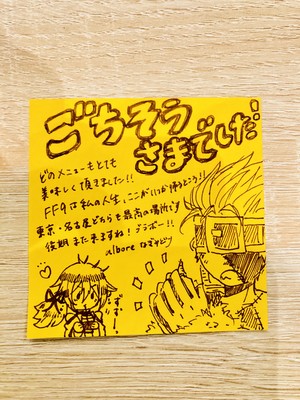 ごちそう
さまでした!
どのメニューもとても
美味しく頂きました!!
FF9は私の人生、ここがいつか帰るところ!!
東京・名古屋どちらも最高の場所です
後期また来ますね!ブラボー!!
albore
ずずー